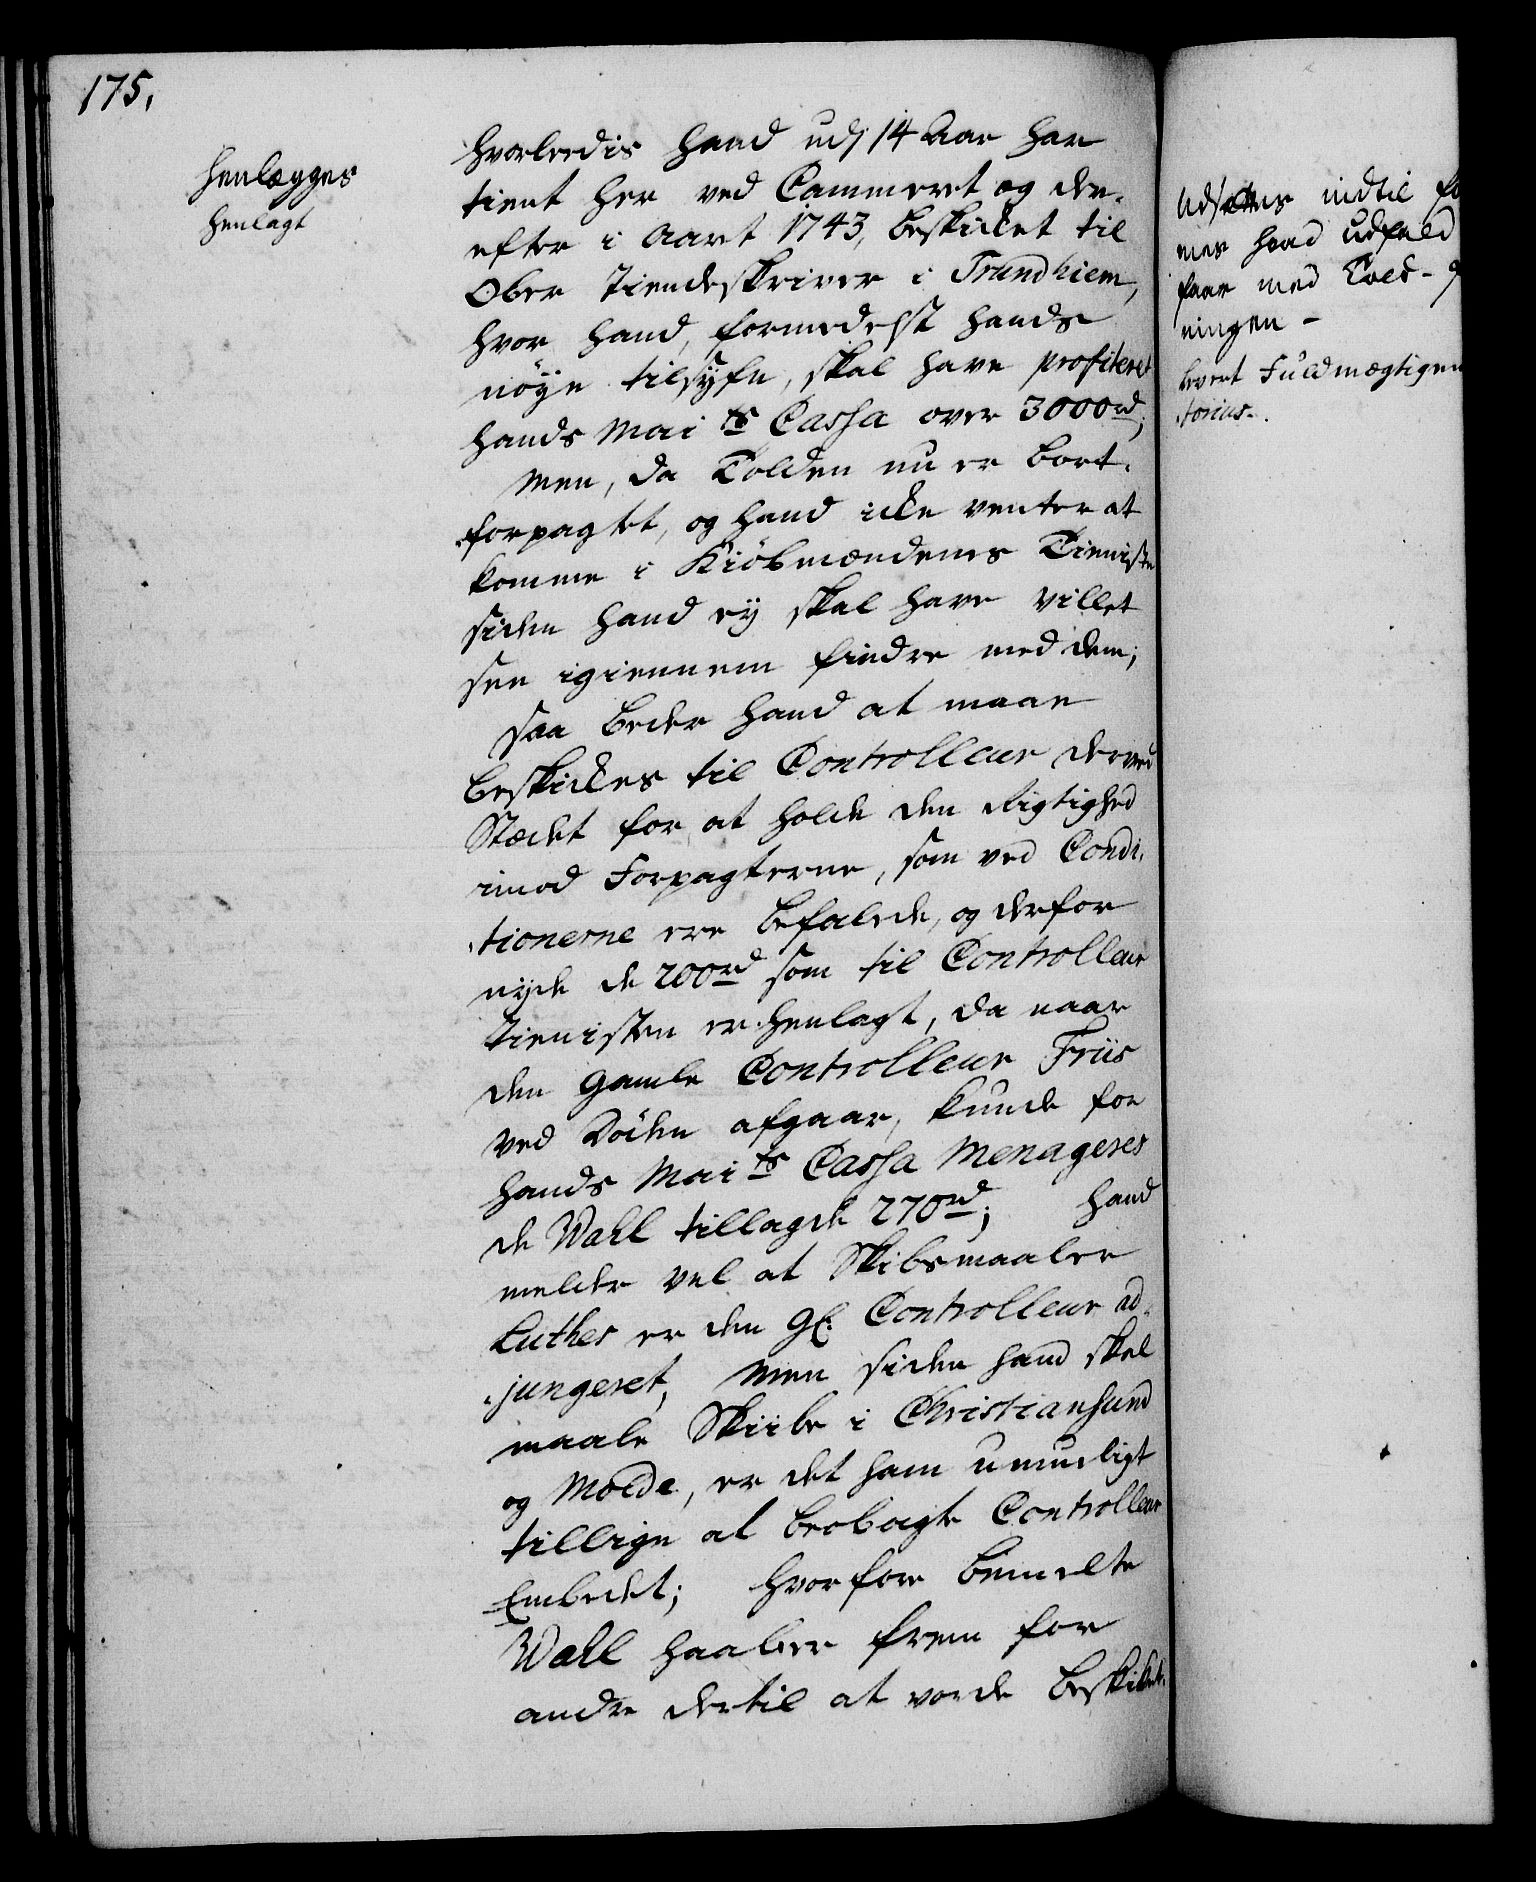 175.
henlægges
henlagt
hvorledis hand udj 14 Aar har
tient her ved Cammeret og der-
efter i Aaret 1743, beskicket til
Ober Tiendeskriver i Trundhiem,
hvor hand, formedelst hands
nöye tilsyn, skal have profiteret
hands Mai ts Cassa over 3000rd;
Men, da Tolden nu er bort-
forpagtet, og hand icke venter at
komme i Kiöbmændenes Tieniste
siden hand ey skal have villet
see igiennem findre med dem;
saa beder hand at maae
beskickes til Controlleur derved
Stædet for at holde den Rigtighed
imod Forpagterne, som ved Condi-
tionerne ere befalede, og derfor
nyde de 200rd som til Controlleur
Tienisten er henlagt, da naar
den gamle Controlleur Friis
ved Döden afgaar, kunde for
hands Mai ts Cassa Menageres
de Wahl tillagde 270rd; hand
melder vel at Skibsmaaler
Luther er den gl: Controlleur ad-
jungeret, Men siden hand skal
maale Skiibe i Christiansund
og Molde, er det ham umueligt
tillige at beobagte Controlleur
Embedet; hvorfore bemelte
Wahl haaber frem for
andre dertil at vorde beskicket.
Udsættes indtil
mer hvad udfald
faar med Told-
ningen -
levert Fuldmægtigen